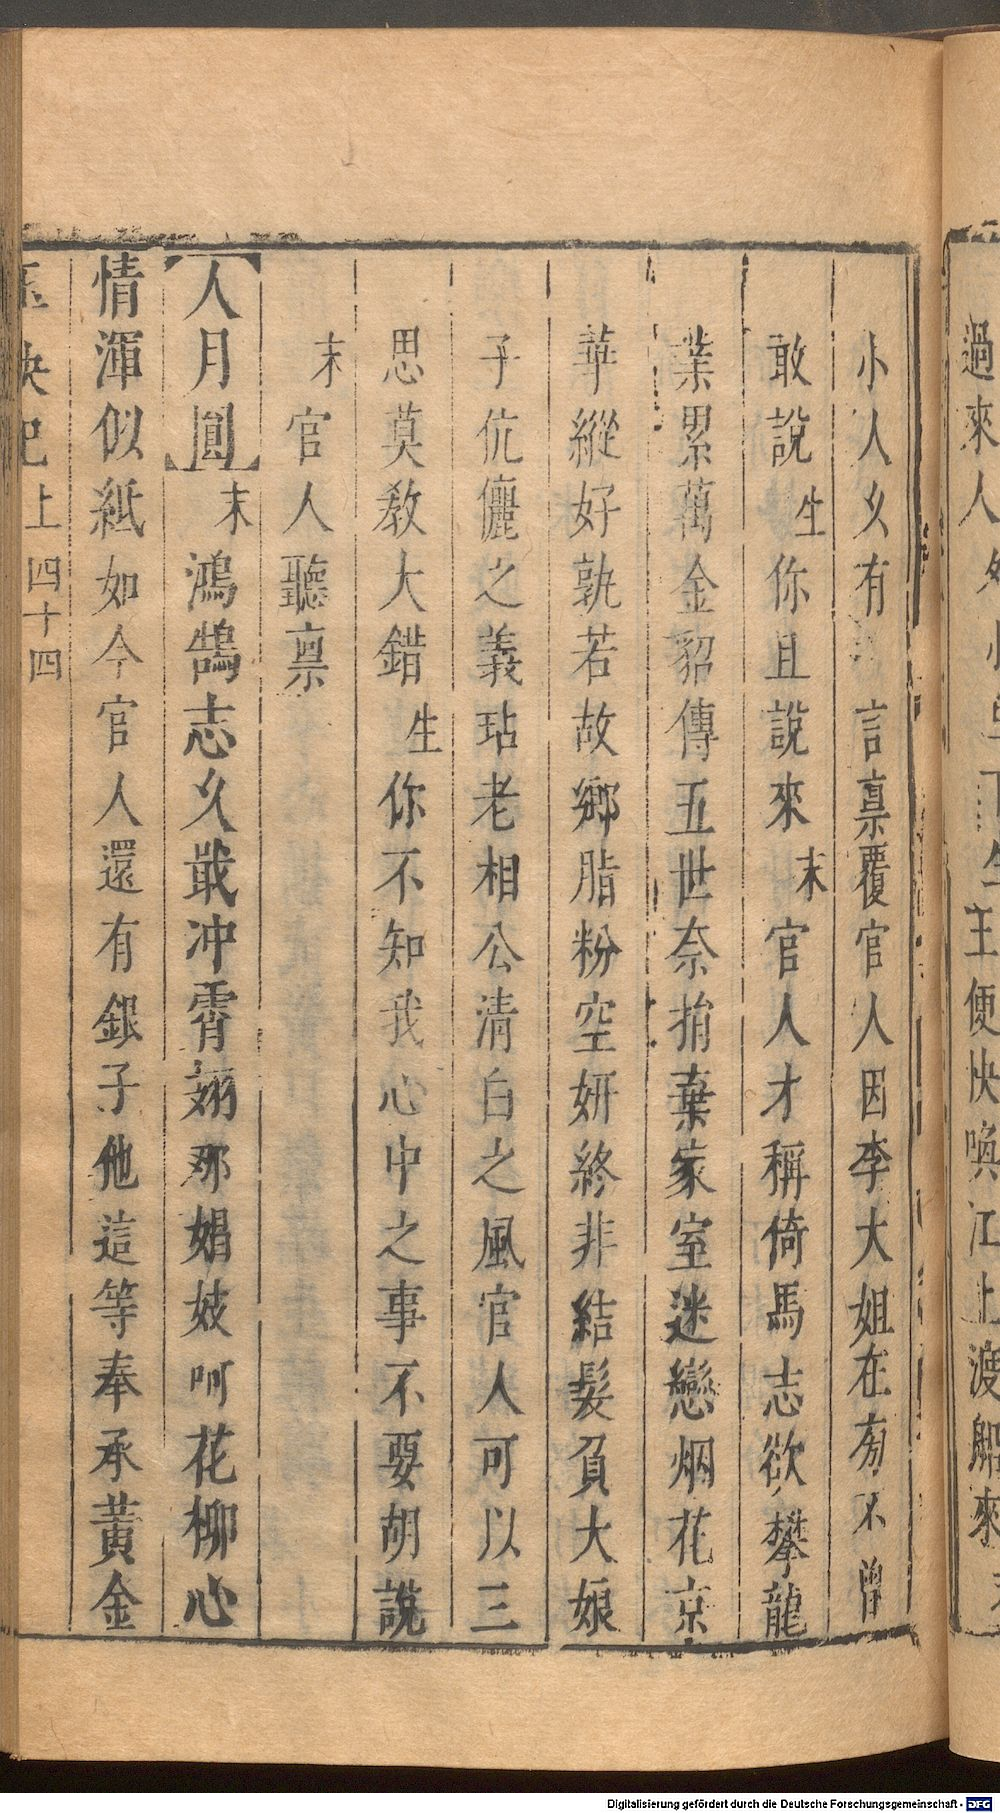 過來人
王便快喚江上渡船來
小人久有 言禀覆官人因李大姐在旁不曾
敢說生你且說來末官人才稱倚馬志欲攀龍
業累萬金貂傳五世奈捐棄家室迷戀烟花京
華縱好孰若故鄉脂粉空妍終非結髮負大娘
子伉儷之義玷老相公清白之風官人可以三
思莫教大錯生你不知我心中之事不要胡說
末官人聽禀
【人月圓】末鴻鵠志久戢冲霄翊那娼妓呵花柳心
情渾似紙如今官人還有銀子他這等奉承黃金
玉玦記上 四十四
Digitalisierung gefördert durch die Deutsche Forschungsgemeinschaft - DFG